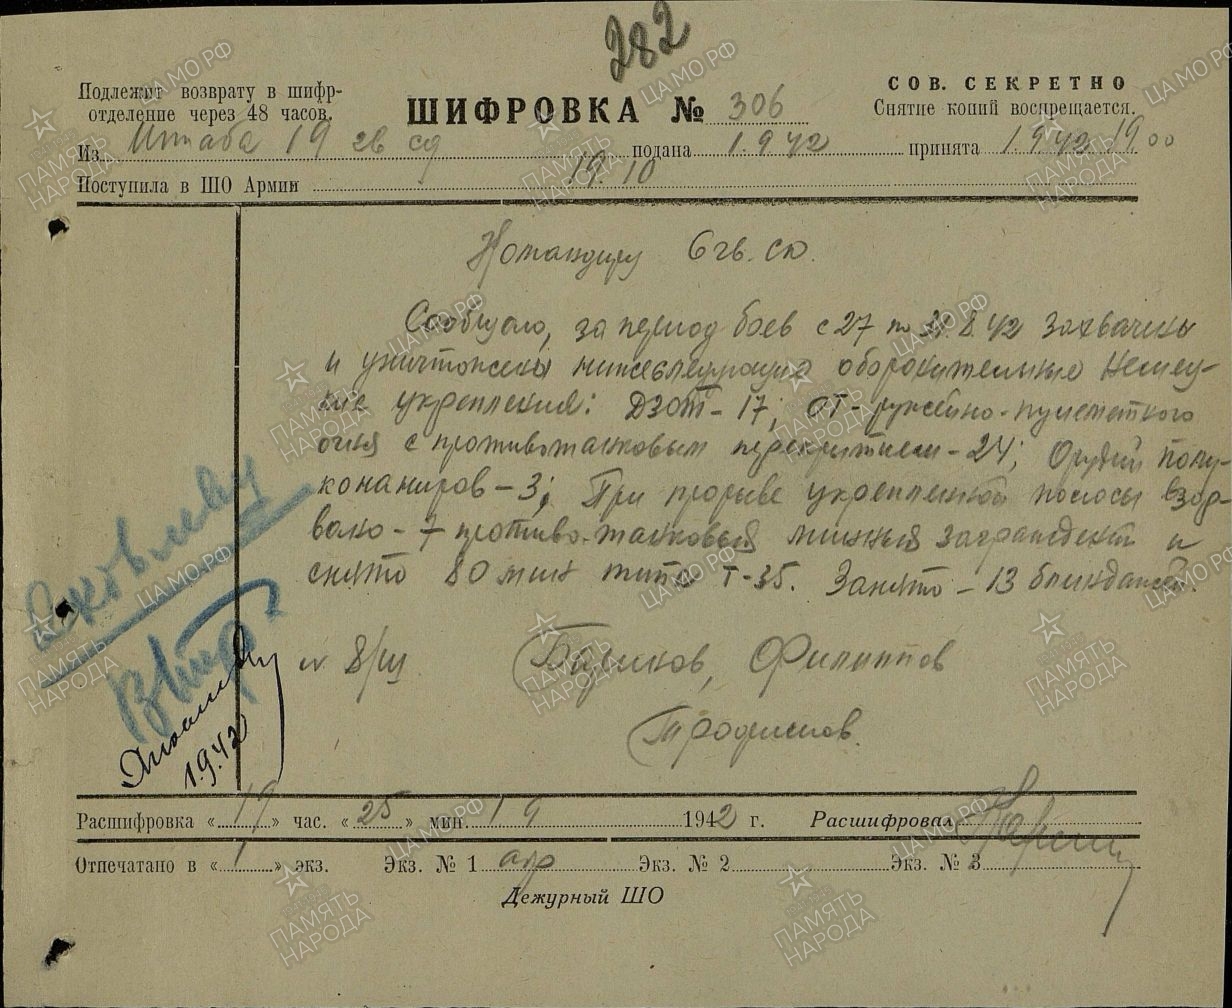 282
Подлежит возврату в шифр-
отделение через 48 часов.
ШИФРОВКА № 306
СОВ. СЕКРЕТНО
Снятие копий воспрещается.
Из Штаба 19 гв сд подана 1.9 42 принята 1.9 42 19 00
Поступила в ШО Армии 19 10
Командиру 6 гв. ск.
Сообщаю, за период боев с 27 по 31.8.42 захвачены
и уничтожены нижеследующие оборонительные немец-
кие укрепления: ДЗОТ-17; ОТ-ружейно-пулеметного
огня с противотанковым перекрытием-24; Орудий полу-
-3; При прорыве укрепленной полосы взор-
вано-7 противо-танковых минных заграждений и
снято 80 мин типа Т-35. Занято-13 блиндажей.
Яковлеву
1.9.42
Баринов, Филиппов
Трофимов.
Расшифровка « 19 » час. « 25 » мин. 1 9 1942 г. Расшифровал
Отпечатано в « 1 » экз. Экз. № 1 Экз. № 2 Экз. № 3
Дежурный ШО
ПАМЯТЬ НАРОДА
ЦАМО.РФ